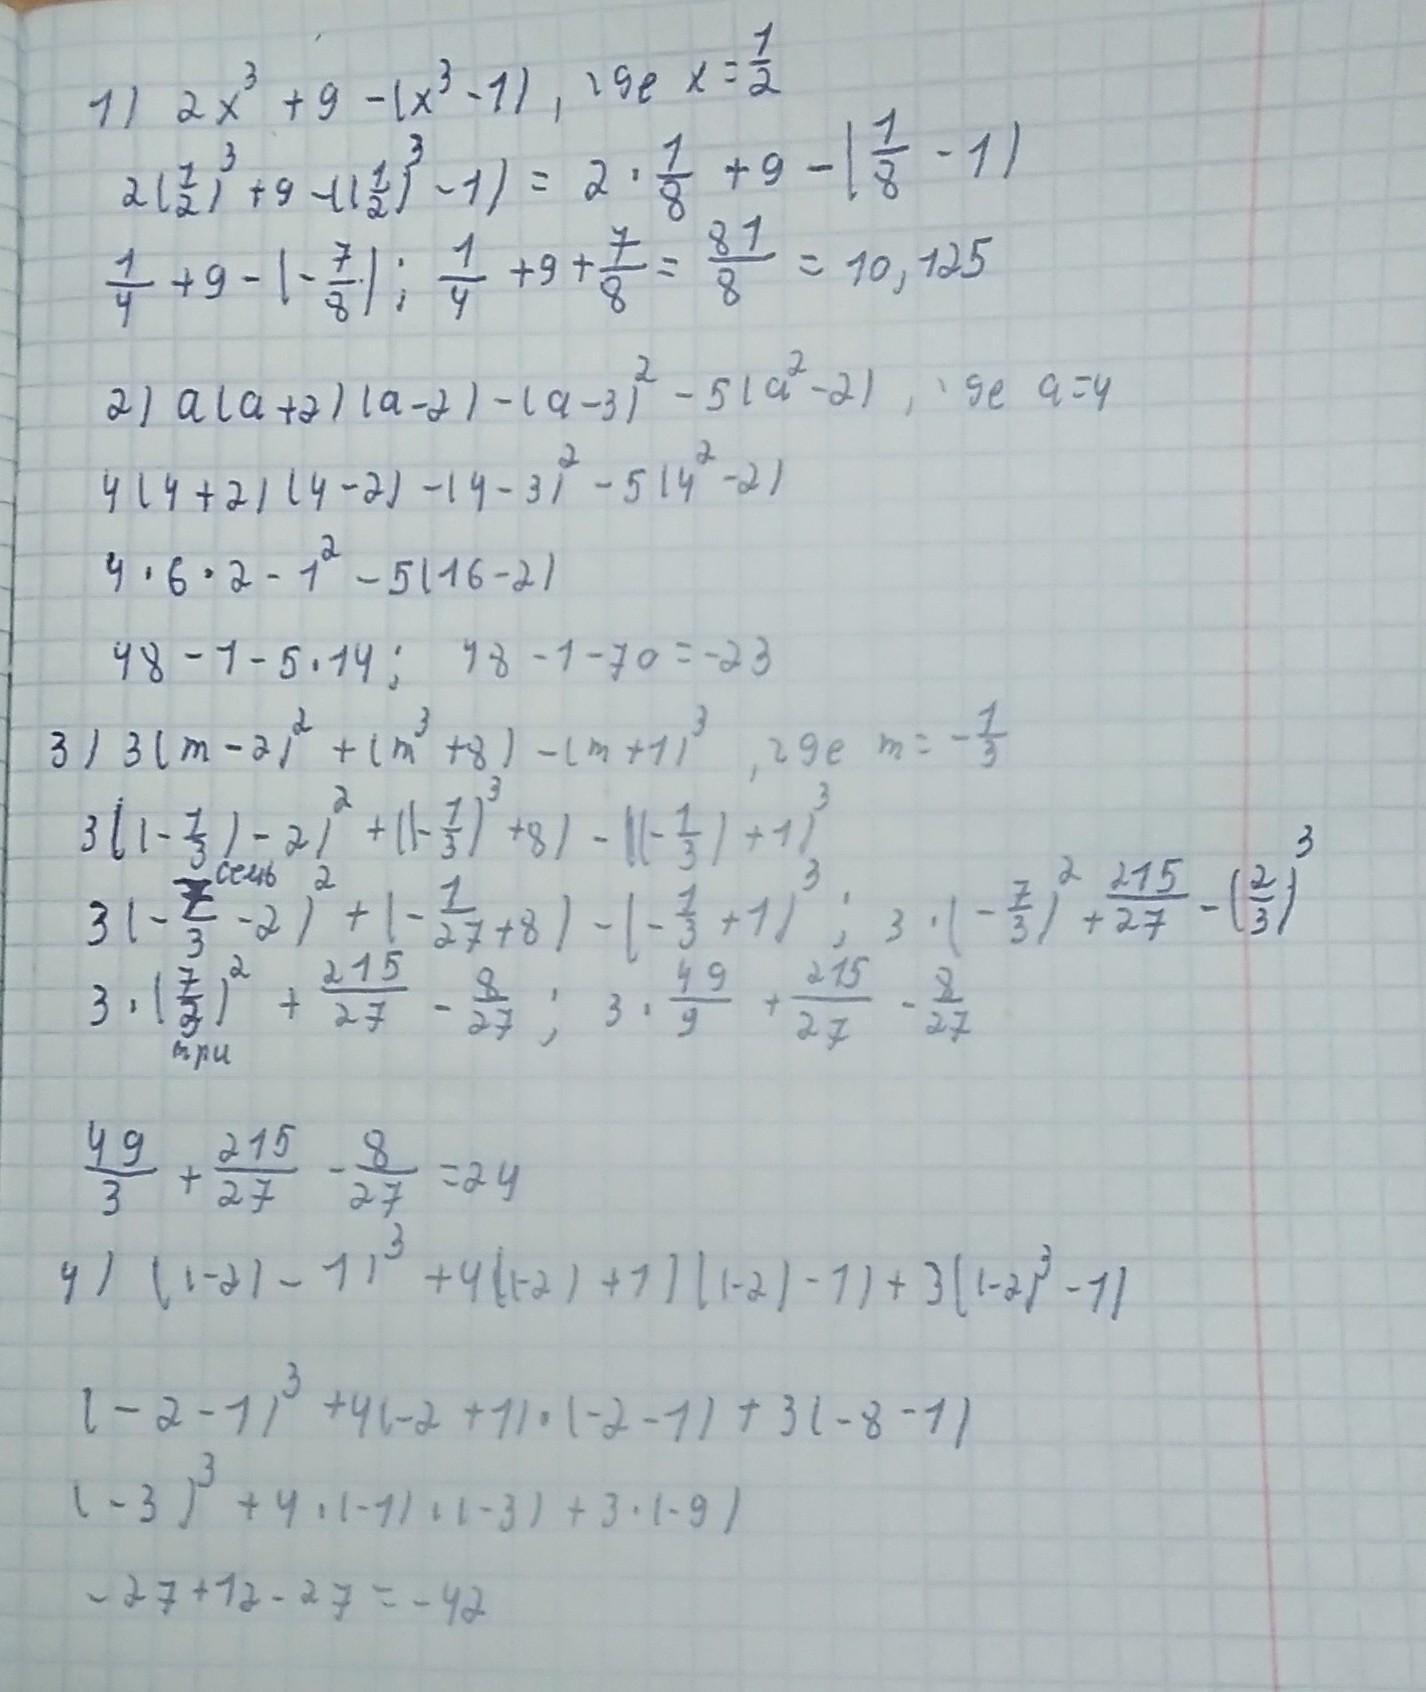 1) 2x³ + 9 - (x³ - 1), где x = 1/2
2(1/2)³ + 9 - ((1/2)³ - 1) = 2 · 1/8 + 9 - (1/8 - 1)
1/4 + 9 - (-7/8); 1/4 + 9 + 7/8 = 81/8 = 10,125
2) a(a+2)(a-2) - (a-3)² - 5(a²-2), где a=4
4(4+2)(4-2) - (4-3)² - 5(4²-2)
4·6·2 - 1² - 5(16-2)
48 - 1 - 5·14; 48 - 1 - 70 = -23
3) 3(m-2)² + (m³+8) - (m+1)³, где m = -1/3
3((-1/3)-2)² + ((-1/3)³+8) - ((-1/3)+1)³
семь
3(-7/3 -2)² + (-1/27+8) - (-1/3+1)³; 3·(-7/3)² + 215/27 - (2/3)³
3·(7/3)² + 215/27 - 8/27; 3·49/9 + 215/27 - 8/27
три
49/3 + 215/27 - 8/27 = 24
4) ((-2)-1)³ + 4((-2)+1)((-2)-1) + 3((-2)³-1)
(-2-1)³ + 4(-2+1)·(-2-1) + 3(-8-1)
(-3)³ + 4·(-1)·(-3) + 3·(-9)
-27+12-27 = -42